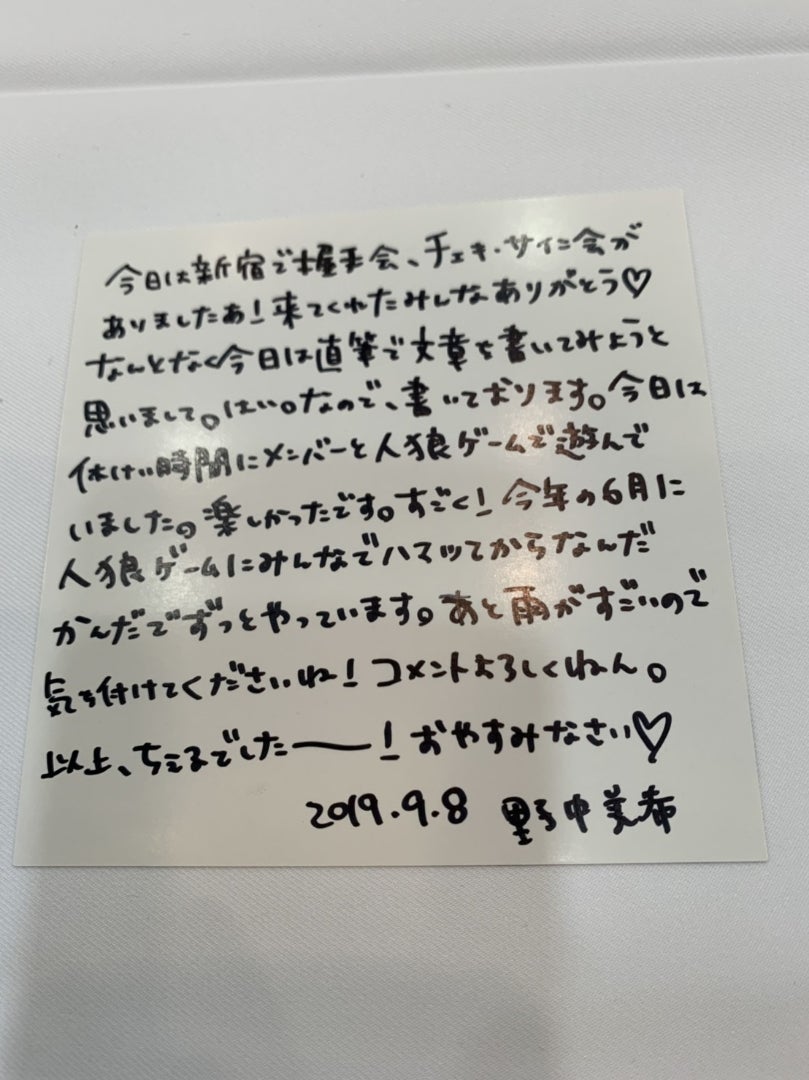 今日は新宿で握手会、チェキ・サイン会が
ありましたあ!来てくれたみんなありがとう♡
なんとなく今日は直筆で文章を書いてみようと
思いまして。はい。なので、書いております。今日は
休けい時間にメンバーと人狼ゲームで遊んで
いました。楽しかったです。すごく!今年の6月に
人狼ゲームにみんなでハマってからなんだ
かんだでずっとやっています。あと雨がすごいので
気を付けてくださいね!コメントよろしくねん。
以上、ちぇるでした〜!おやすみなさい♡
2019.9.8 野中美希